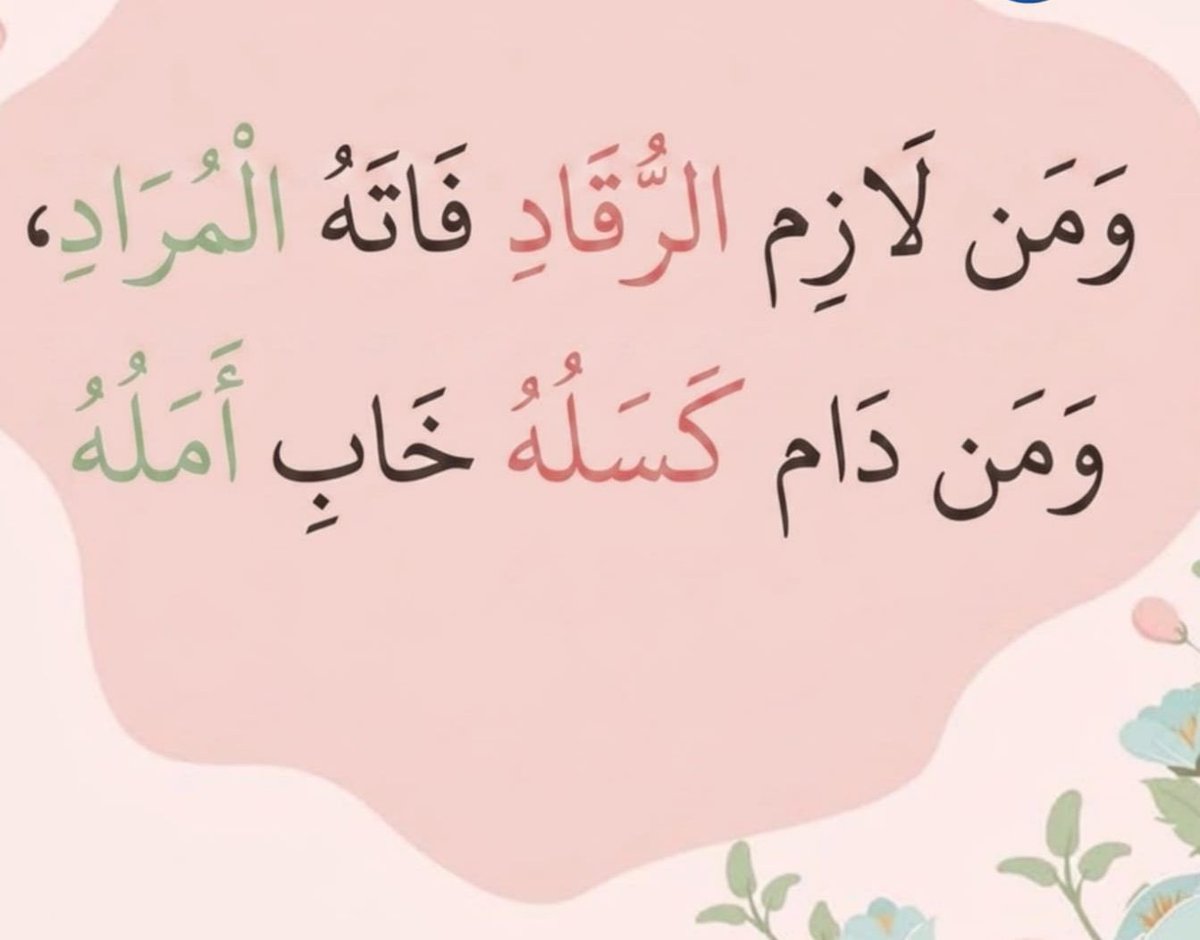 وَمَن لَازِم الرُّقَادِ فَاتَهُ الْمُرَادِ،
وَمَن دَام كَسَلُهُ خَابِ أَمَلُهُ